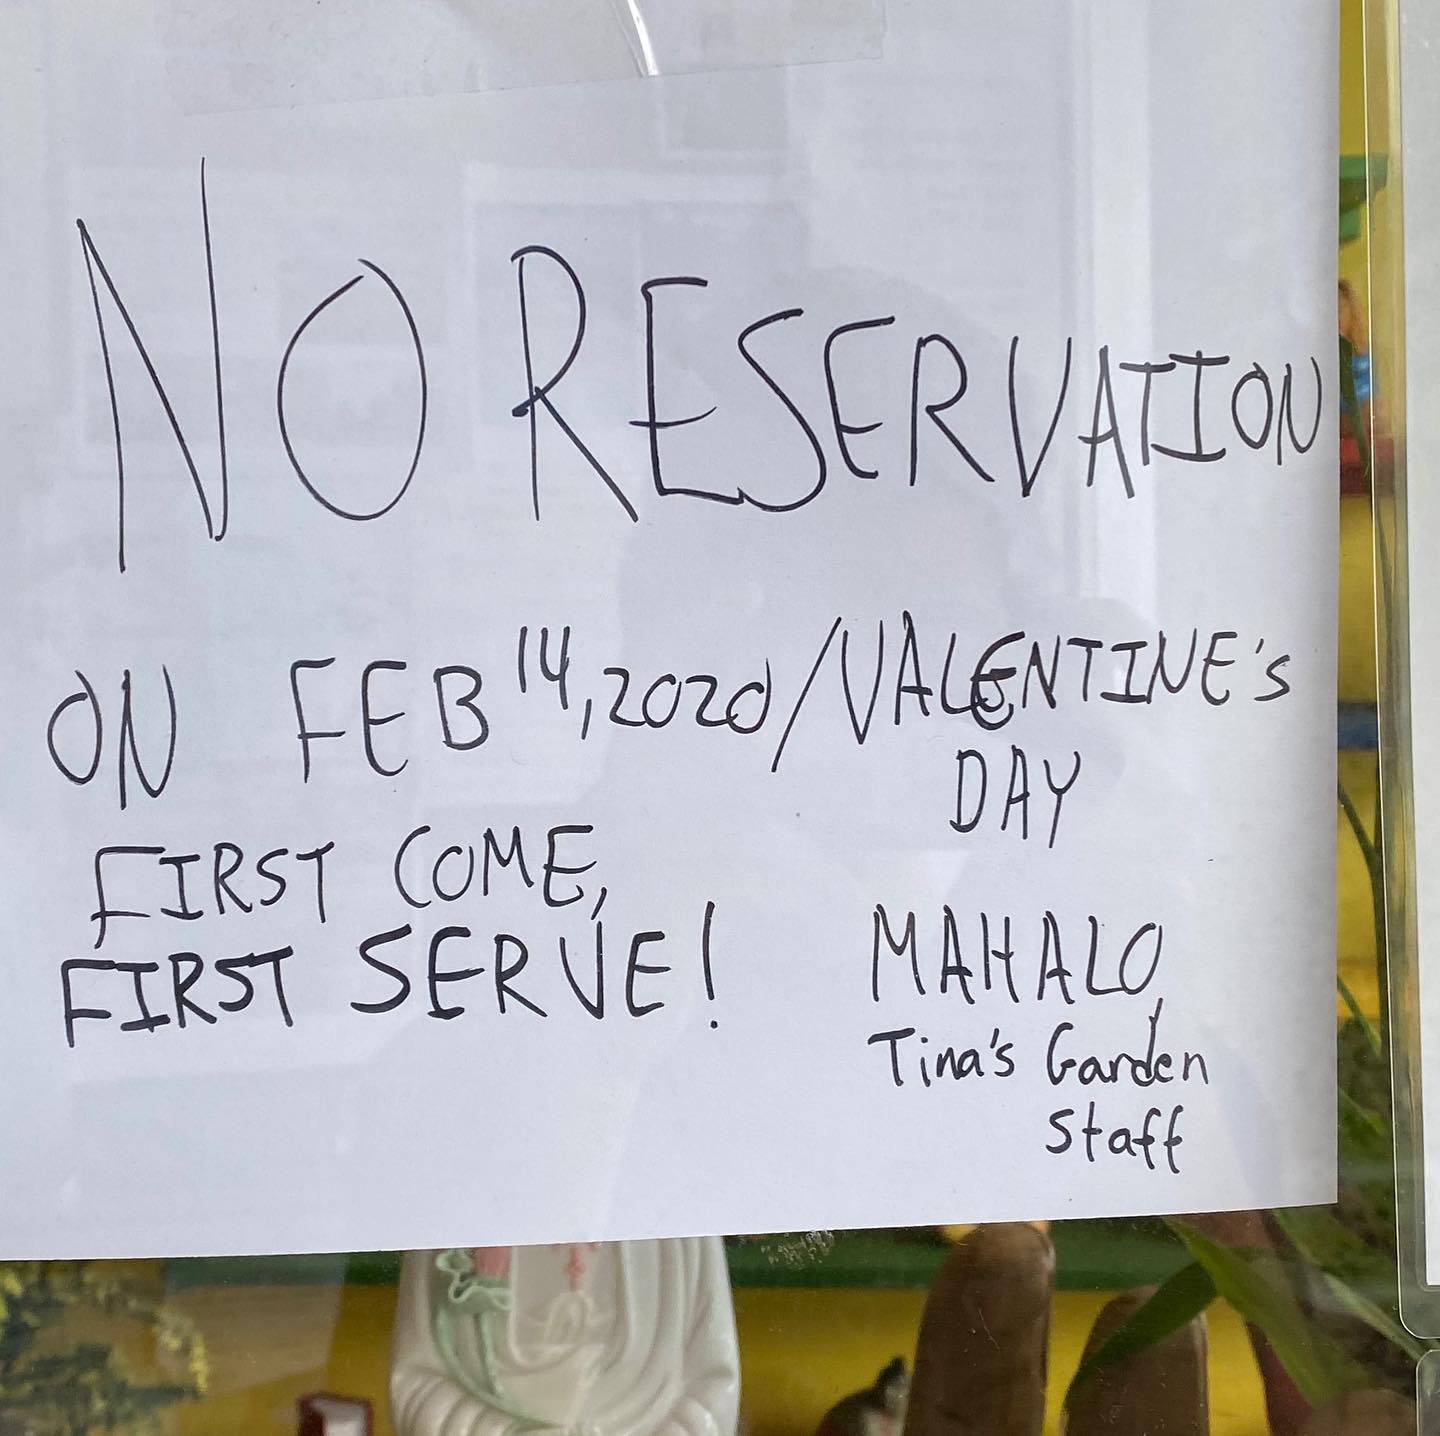 NO RESERVATION
ON FEB 14, 2020/VALENTINE'S
DAY
FIRST COME,
FIRST SERVE!
MAHALO,
Tina's Garden
Staff